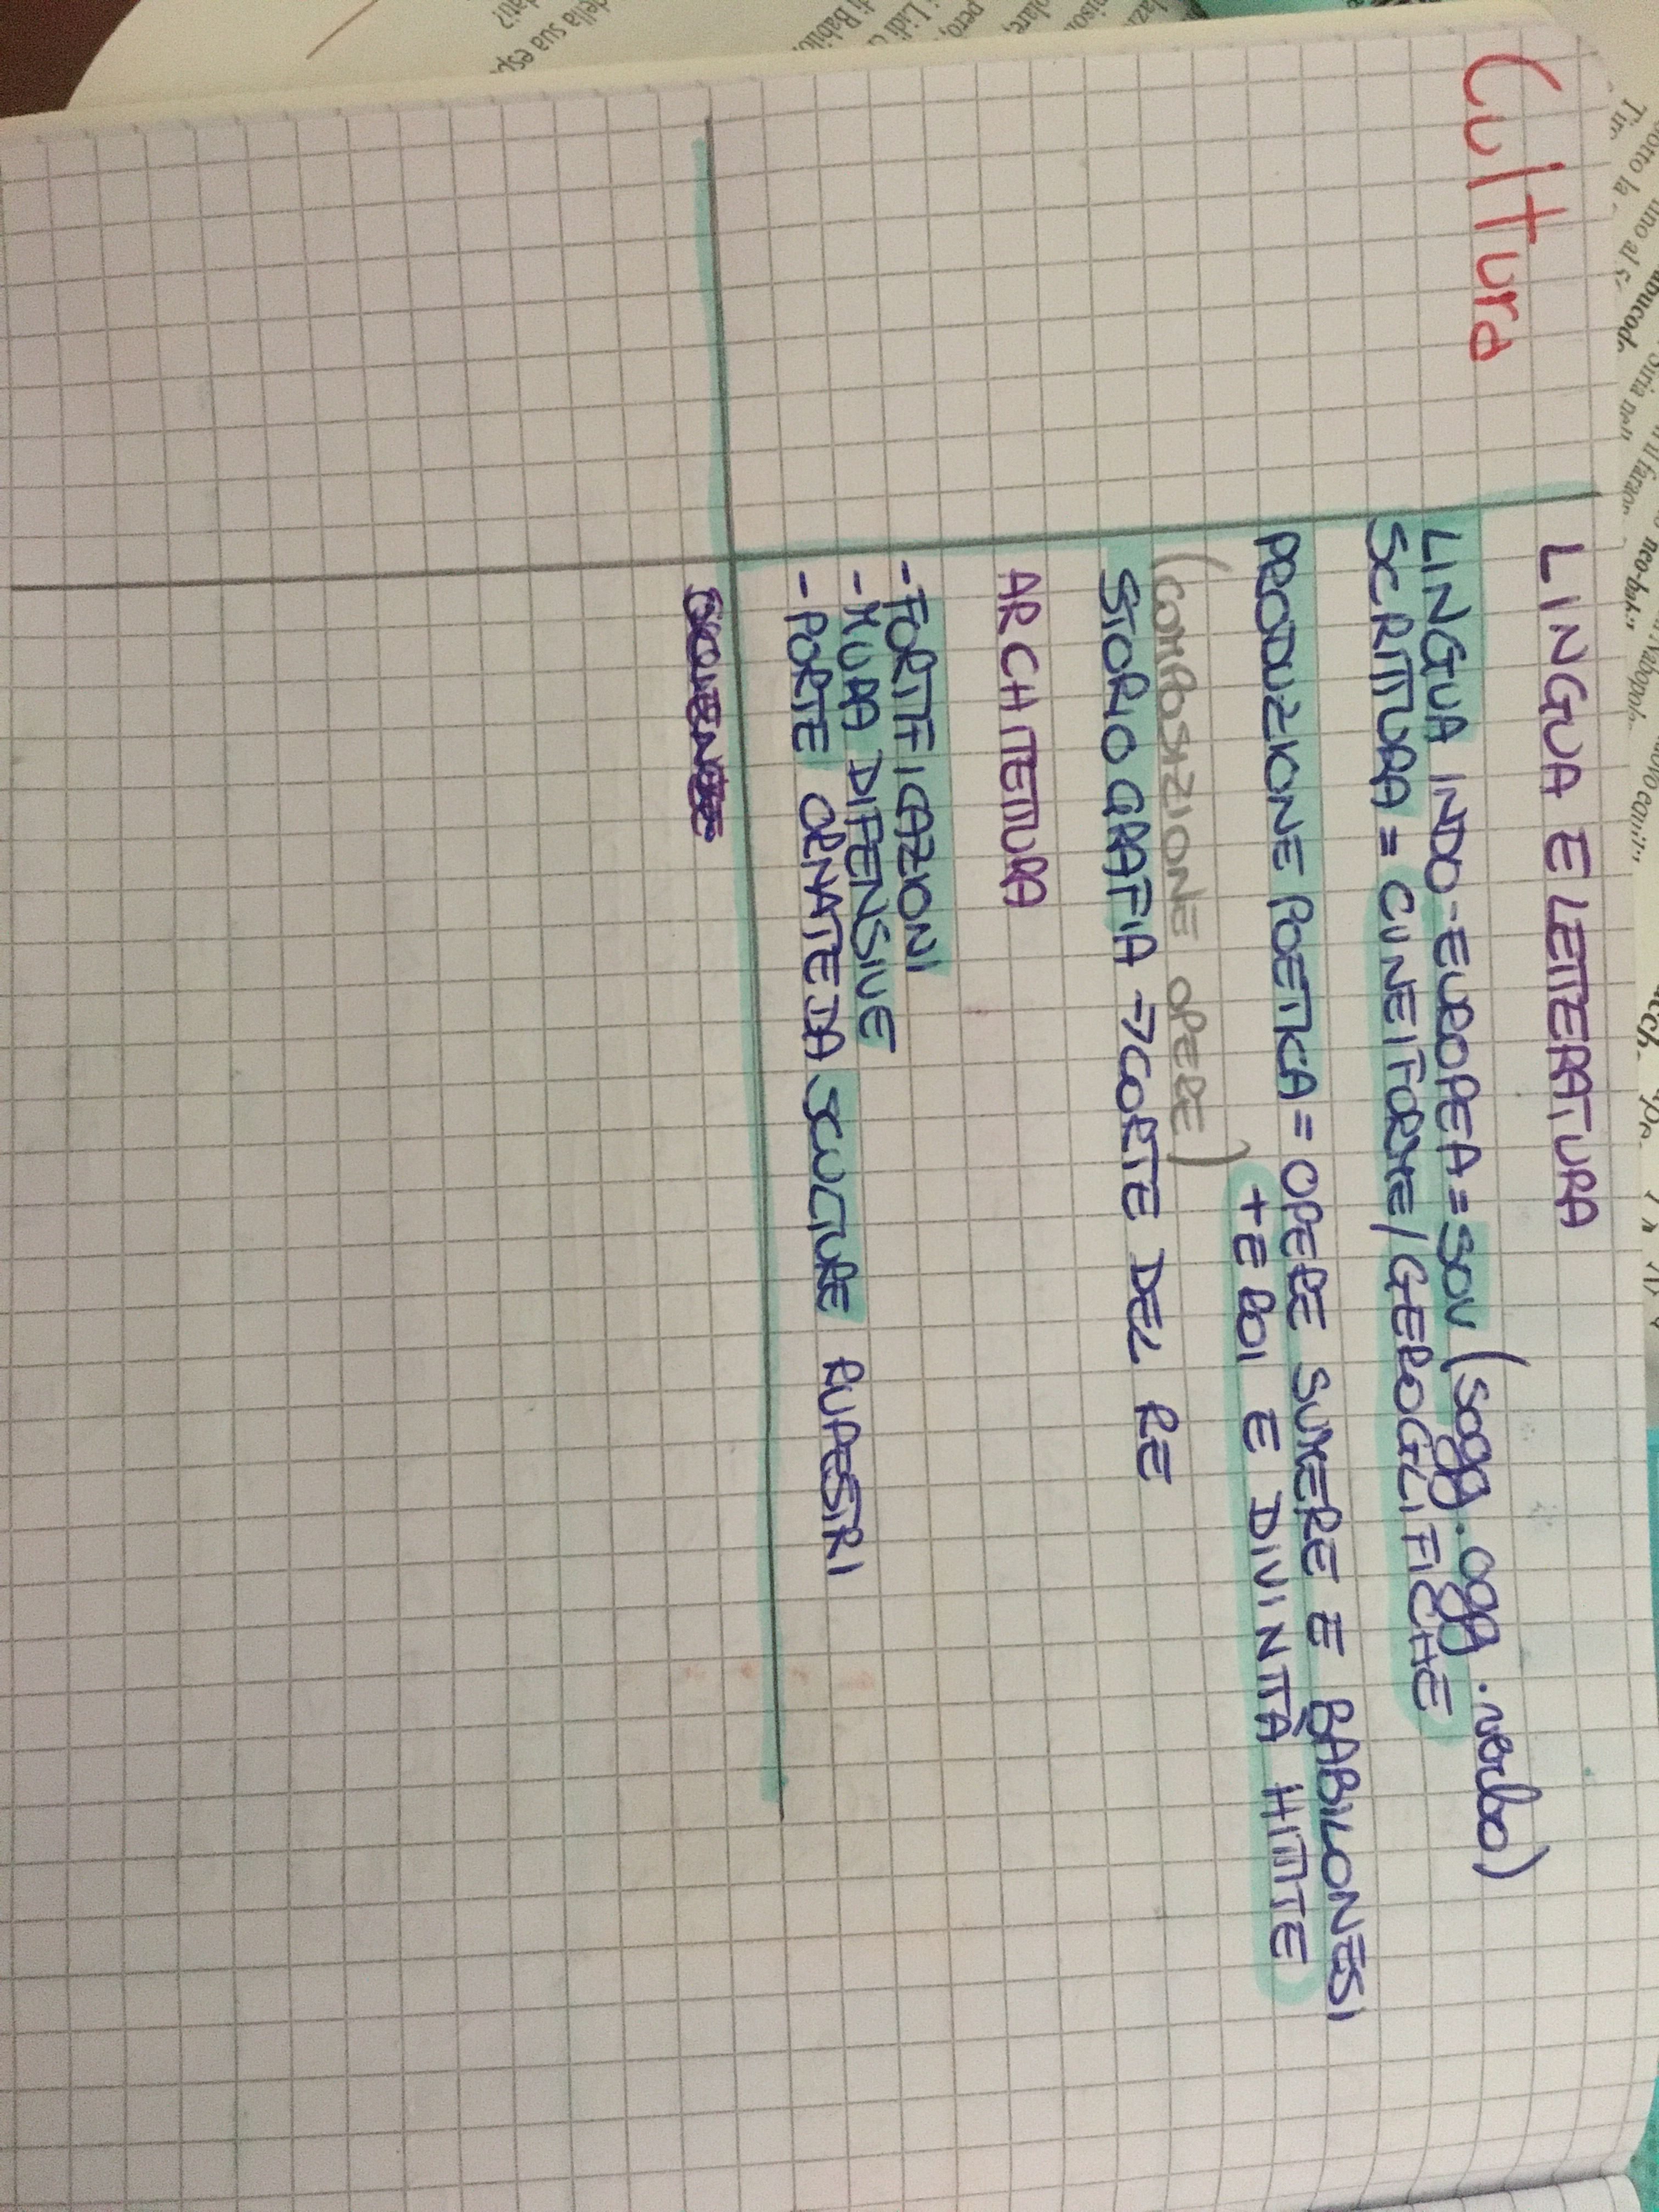 Cultura
LINGUA E LETTERATURA
LINGUA INDO-EUROPEA = SOV (sogg. ogg. verbo)
SCRITTURA = CUNEIFORME/GEROGLIFICHE
PRODUZIONE POETICA = OPERE SUMERE E BABILONESI
+ EROI E DIVINITÀ HITTITE
(COMPOSIZIONE OPERE)
STORIOGRAFIA → CORTE DEL RE
ARCHITETTURA
- FORTIFICAZIONI
- MURA DIFENSIVE
- PORTE ORNATE DA SCULTURE RUPESTRI